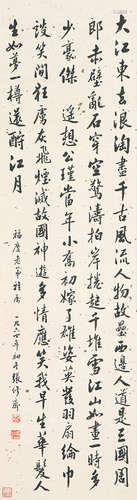 大江東去浪淘盡千古風流人物故壘西邊人道是三國周
郎赤壁亂石穿空驚濤拍岸捲起千堆雪江山如畫一時多
少豪傑 遙想公瑾當年小喬初嫁了雄姿英發羽扇綸巾
談笑間狂虜灰飛煙滅故國神遊多情應笑我早生華髮人
生如夢一樽還酹江月
福慶老弟
一九八四年初冬張修